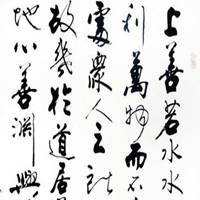 上善若水水
利萬物而不
處衆人之所
故幾於道居
地心善淵與